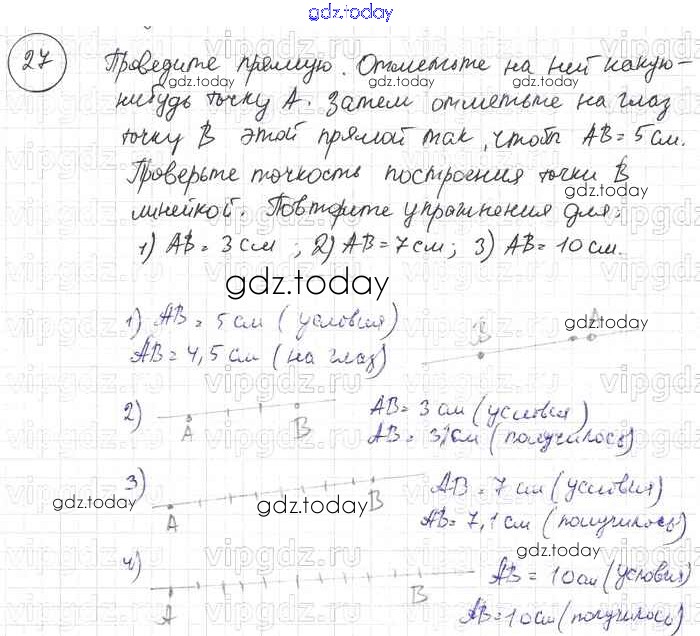 gdz.today
27 Проведите прямую. Отметьте на ней какую-
gdz.today gdz.today
нибудь точку А. Затем отметьте на глаз
точку В этой прямой так, чтобы АВ = 5 см.
gdz.today
Проверьте точность построения точки В
gdz.today
линейкой. Повторите упражнения для:
1) АВ = 3 см ; 2) АВ = 7 см; 3) АВ = 10 см.
gdz.today
1) АВ = 5 см (условия)
В gdz.today А
АВ = 4,5 см (на глаз)
2) А В АВ = 3 см (условия)
АВ = 3,1 см (получилось)
3) А В АВ = 7 см (условия)
gdz.today gdz.today gdz.today
АВ = 7,1 см (получилось)
gdz.today
4) А В АВ = 10 см (условия)
АВ = 10 см (получилось)
vipgdz.ru